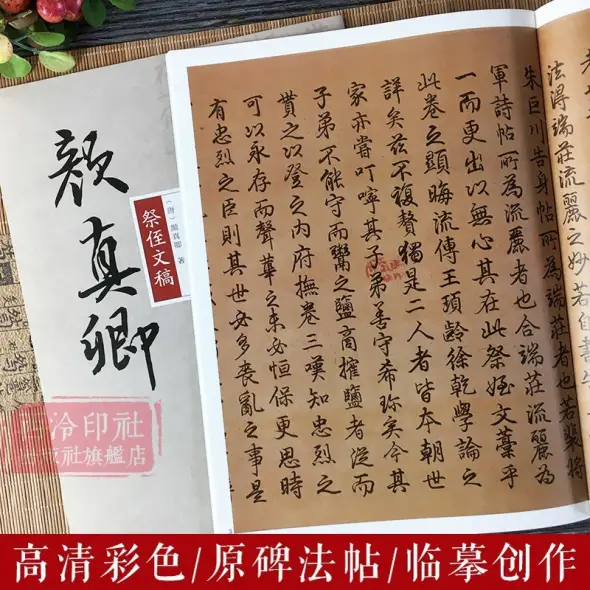 顔真卿
（唐）顔真卿 著
祭侄文稿
泠印社
社旗艦店
法得端莊流麗之妙若自書告
朱巨川告身帖所為端莊者也若裴將
軍詩帖所為流麗者也合端莊流麗為
一而更出以無心其在此祭姪文藁乎
此卷之顯晦流傳王頊齡徐乾學論之
詳矣茲不復贅獨是二人者皆本朝世
家亦嘗叮嚀其子弟善守希珎矣今其
子弟不能守而鬻之鹽商搉鹽者從而
貰之以登之内府撫卷三嘆知忠烈之
可以永存而聲華之未必恒保更思時
有忠烈之臣則其世必多喪亂之事是
高清彩色/原碑法帖/临摹创作